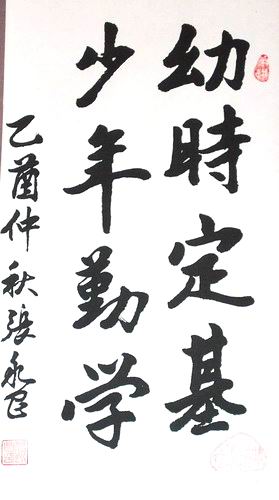 幼時定基
少年勤学
乙酉仲秋張永民